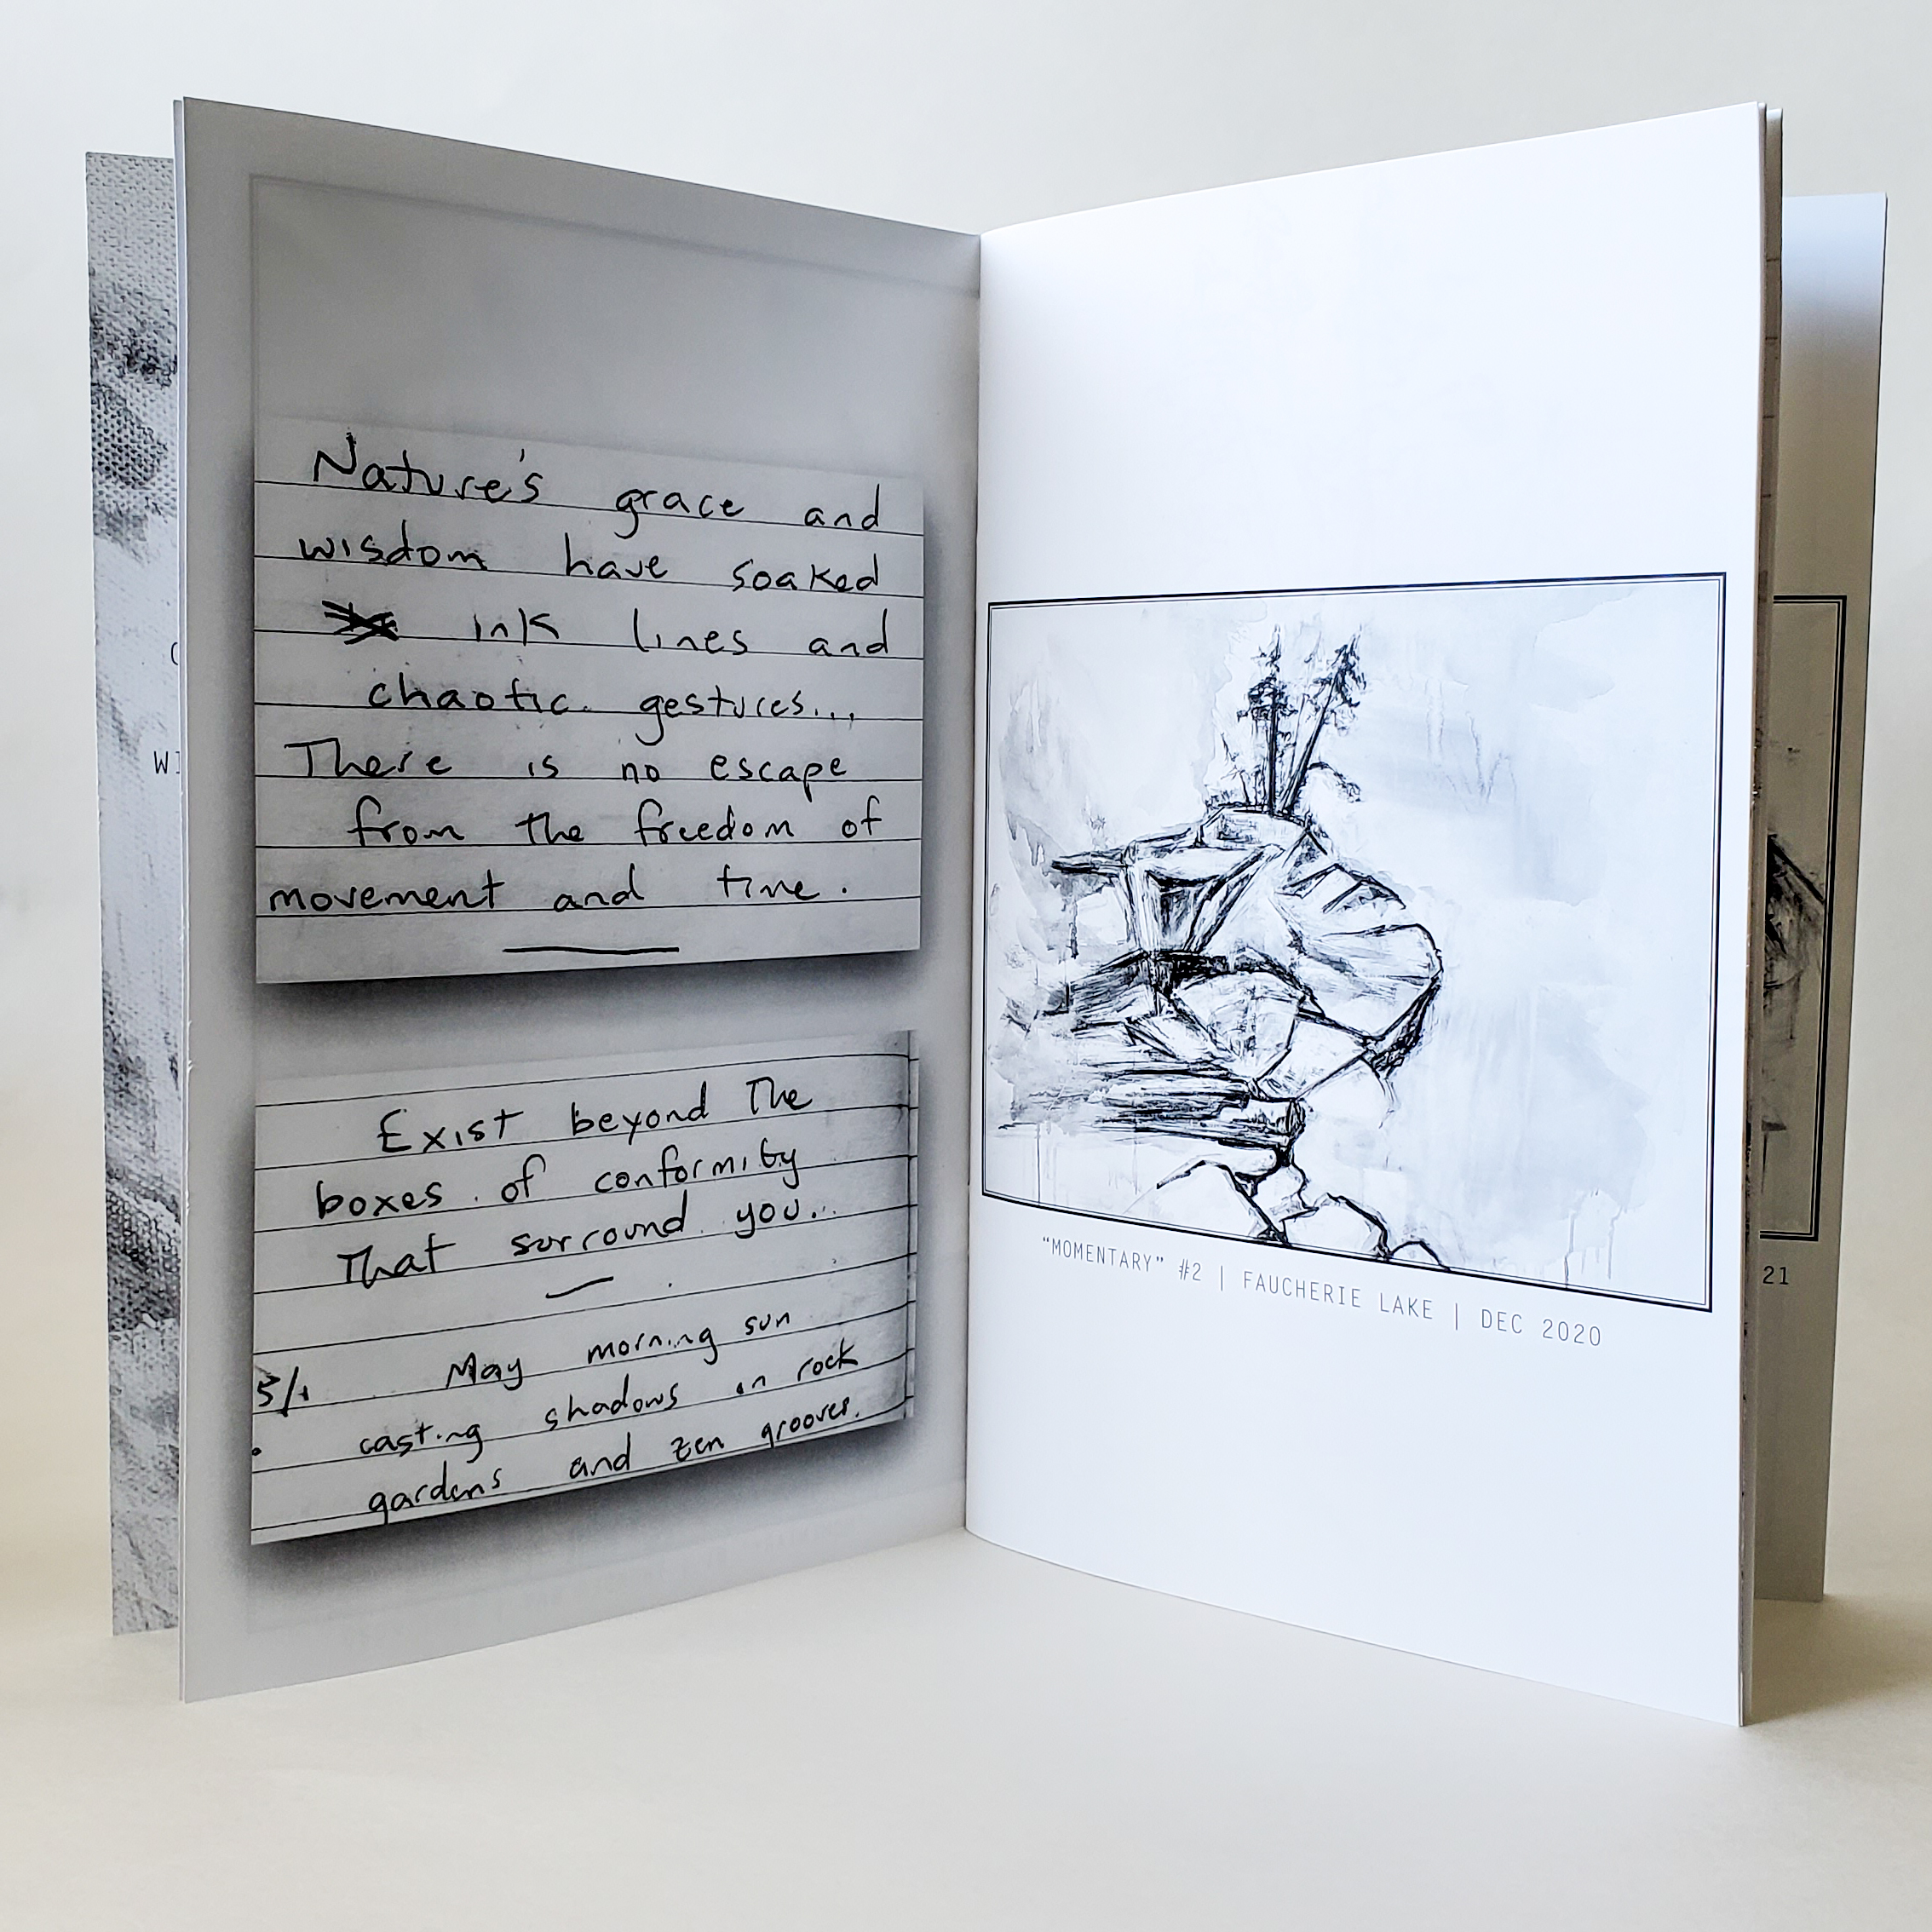 Nature's grace and
wisdom have soaked
ink lines and
chaotic gestures...
There is no escape
from the freedom of
movement and time.
Exist beyond The
boxes of conformity
That surround you...
May morning sun
5/1 casting shadows in rock
gardens and zen grooves.
"MOMENTARY" #2 | FAUCHERIE LAKE | DEC 2020
21
WI